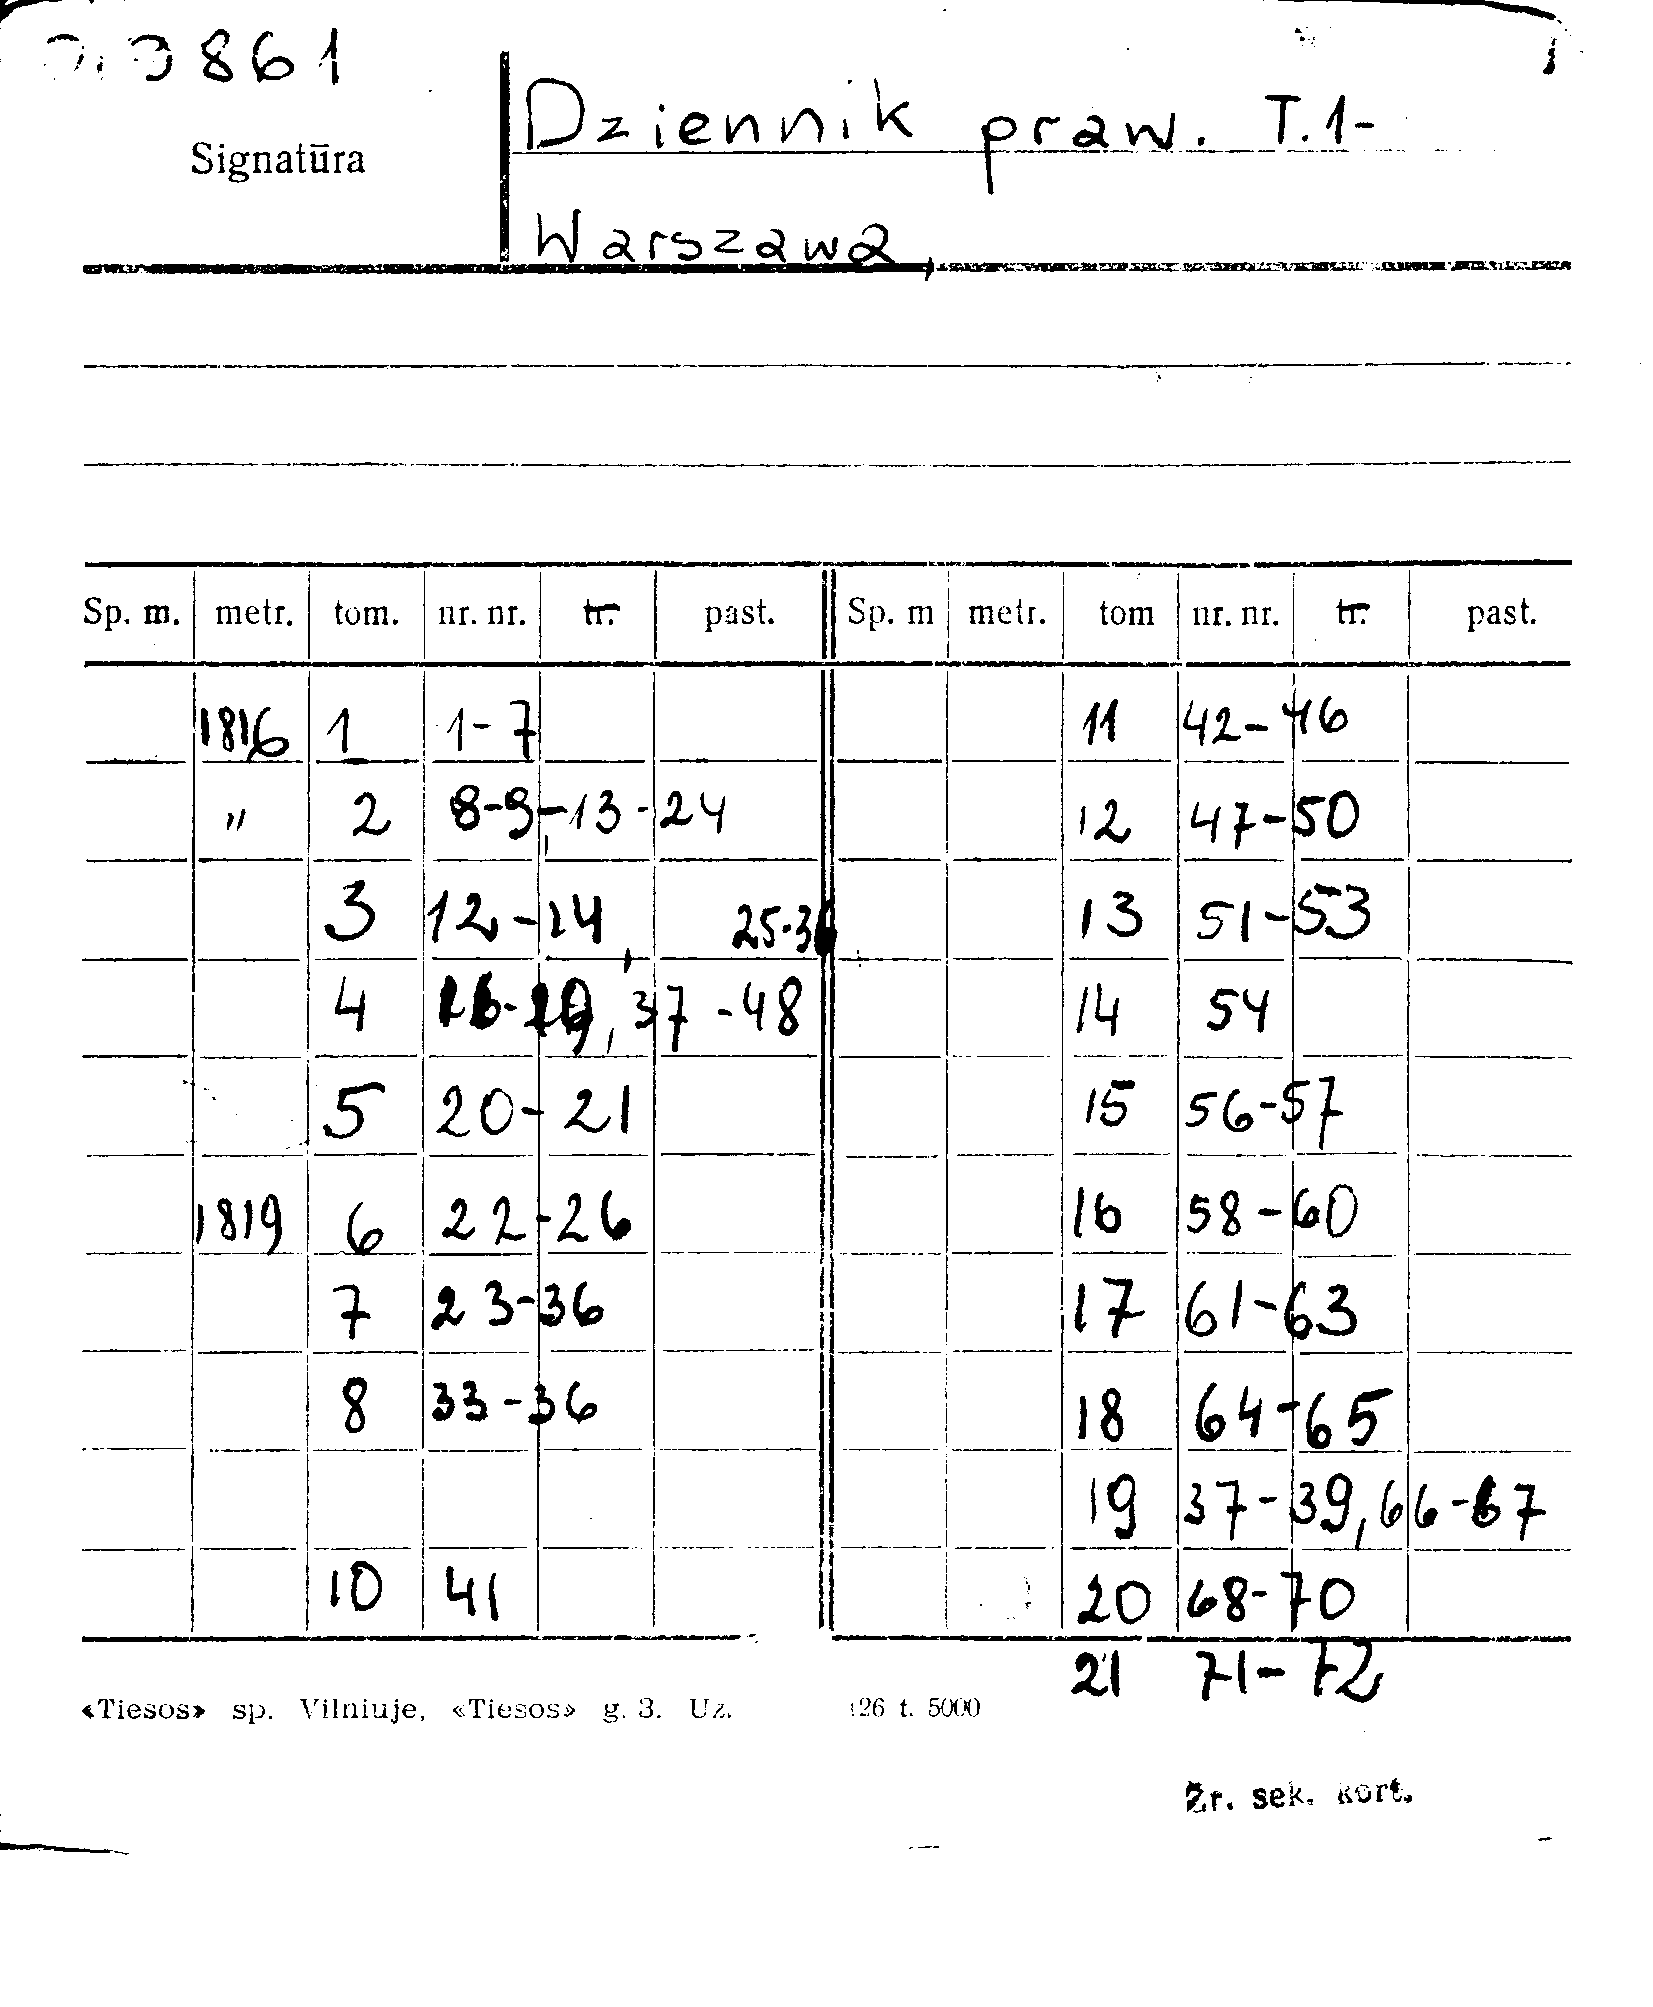 861
Signatūra
Dziennik praw. T. 1-
Warszawa,
Sp. m. metr. tom. nr. nr. tr. past. Sp. m metr. tom nr. nr. tr. past.
1816 1 1-7 11 42-46
" 2 8-9,-13-24 12 47-50
3 12-14, 25-36 13 51-53
4 37-48 14 54
5 20-21 15 56-57
1819 6 22-26 16 58-60
7 23-36 17 61-63
8 33-36 18 64-65
19 37-39, 66-67
10 41 20 68-70
21 71-72
«Tiesos» sp. Vilniuje, «Tiesos» g. 3. Uz. 126 t. 5000
Žr. sek. kort.